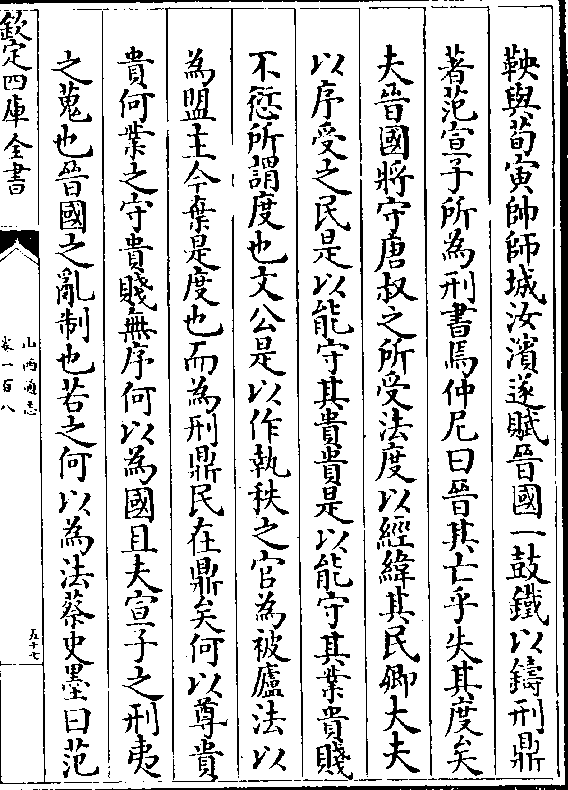 鞅與荀寅帥師城汝濱遂賦晉國一鼓鐵以鑄刑鼎
著范宣子所為刑書焉仲尼曰晉其亡乎失其度矣
夫晉國將守唐叔之所受法度以經緯其民卿大夫
以序受之民是以能守其貴貴是以能守其業貴賤
不愆所謂度也文公是以作執秩之官為被廬法以
為盟主今棄是度也而為刑鼎民在鼎矣何以尊貴
貴何業之守貴賤無序何以為國且夫宣子之刑夷
之蒐也晉國之亂制也若之何以為法蔡史墨曰范
欽定四庫全書
山西通志
卷一百八
五十七